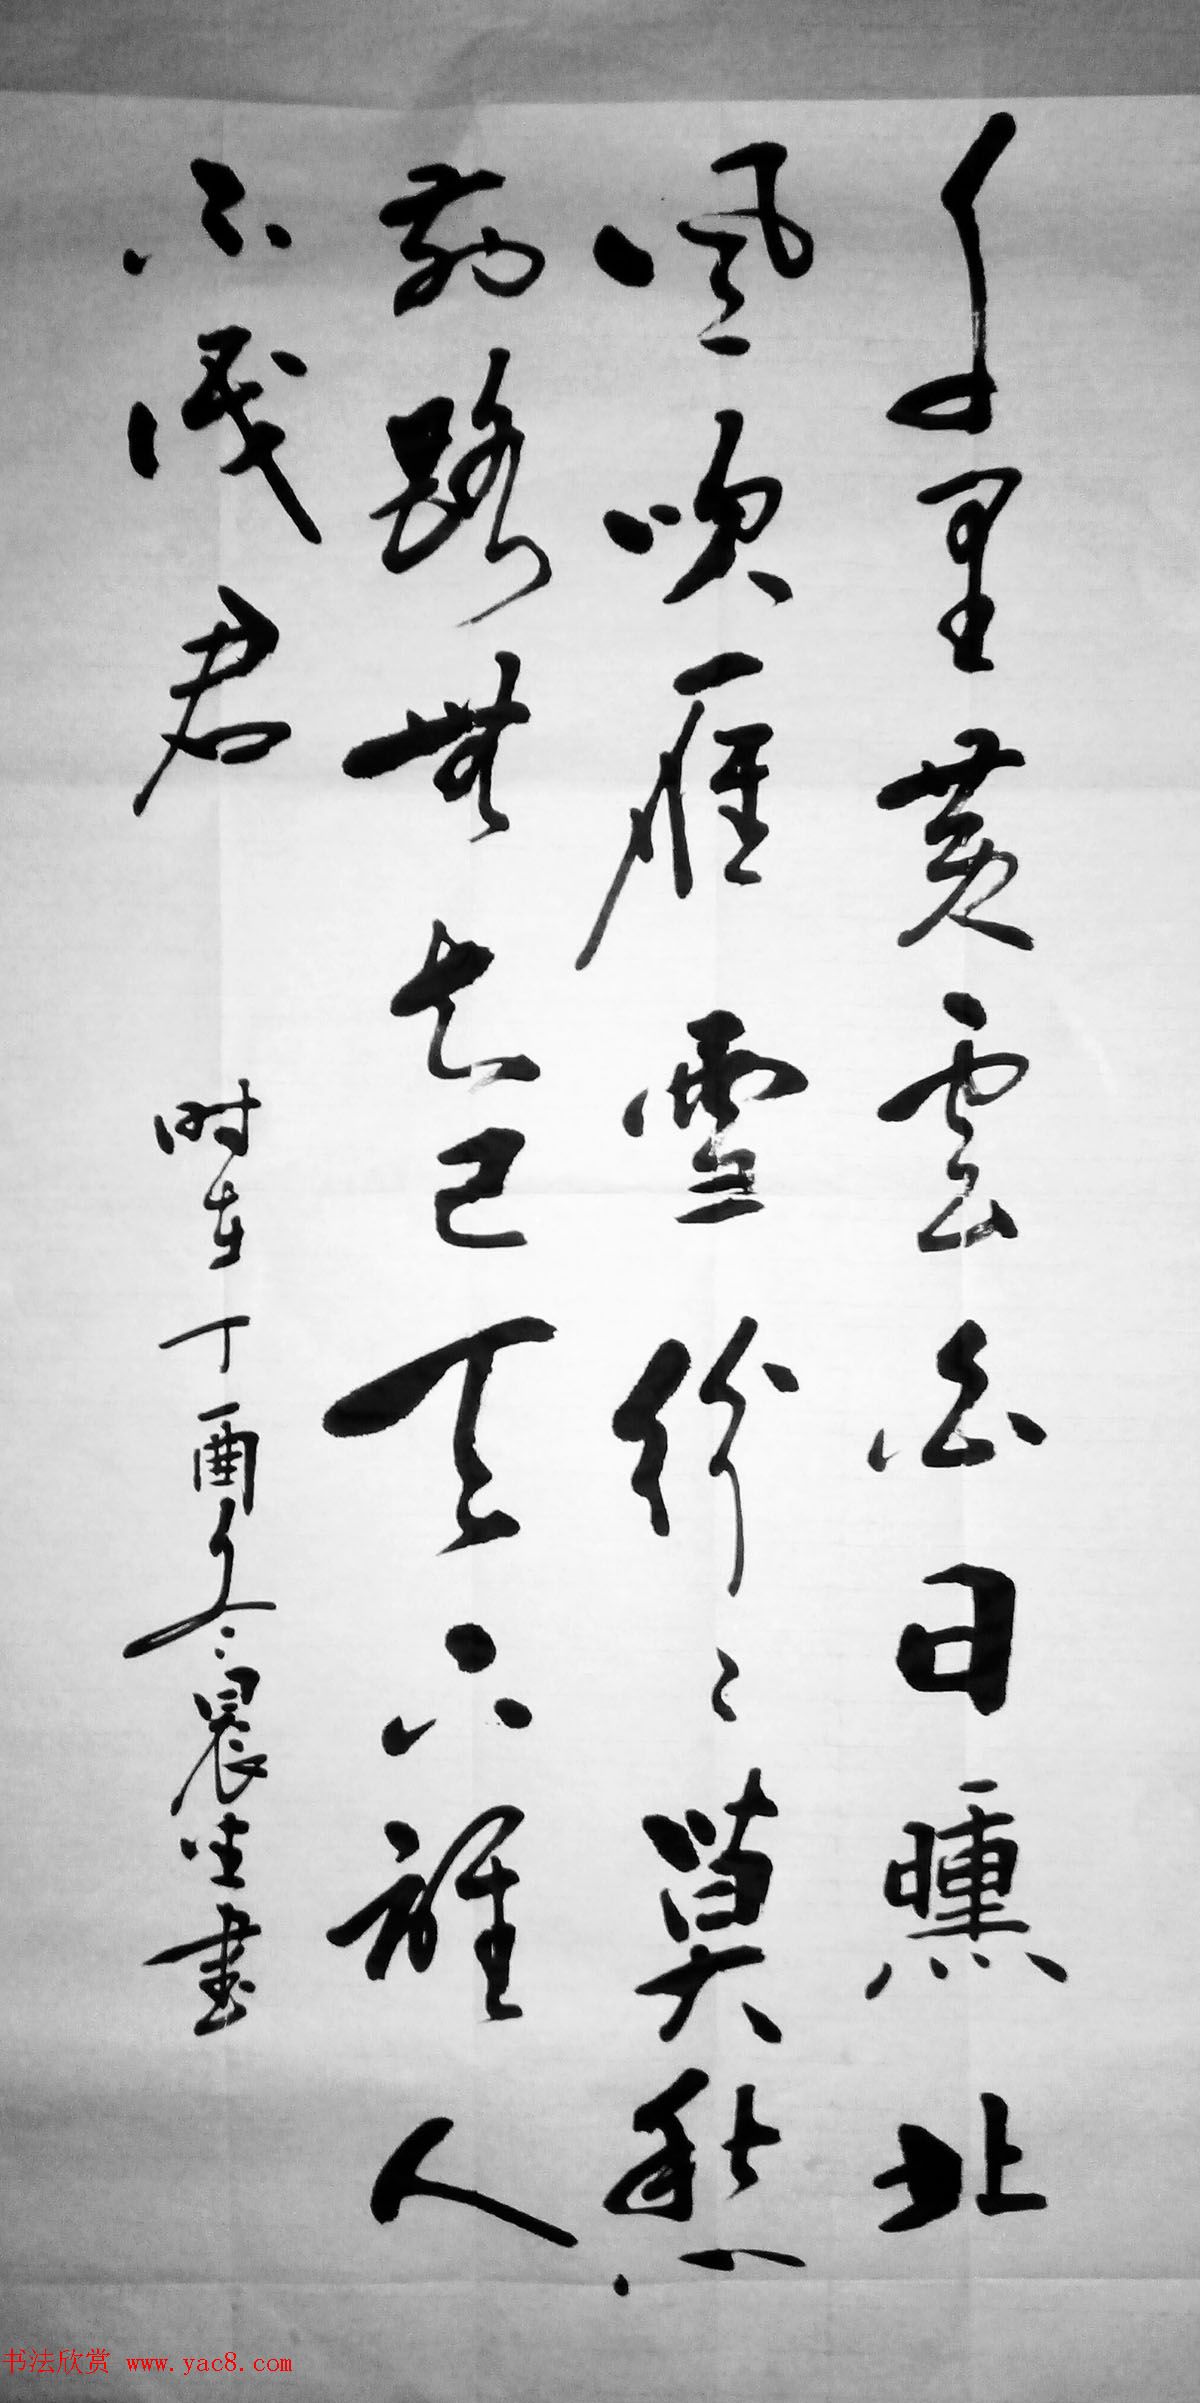 千里黄雲白日曛北
風吹雁雪紛々莫愁
前路無知己天下誰人
不識君
时在丁酉冬晨生書
书法欣赏 www.yac8.com